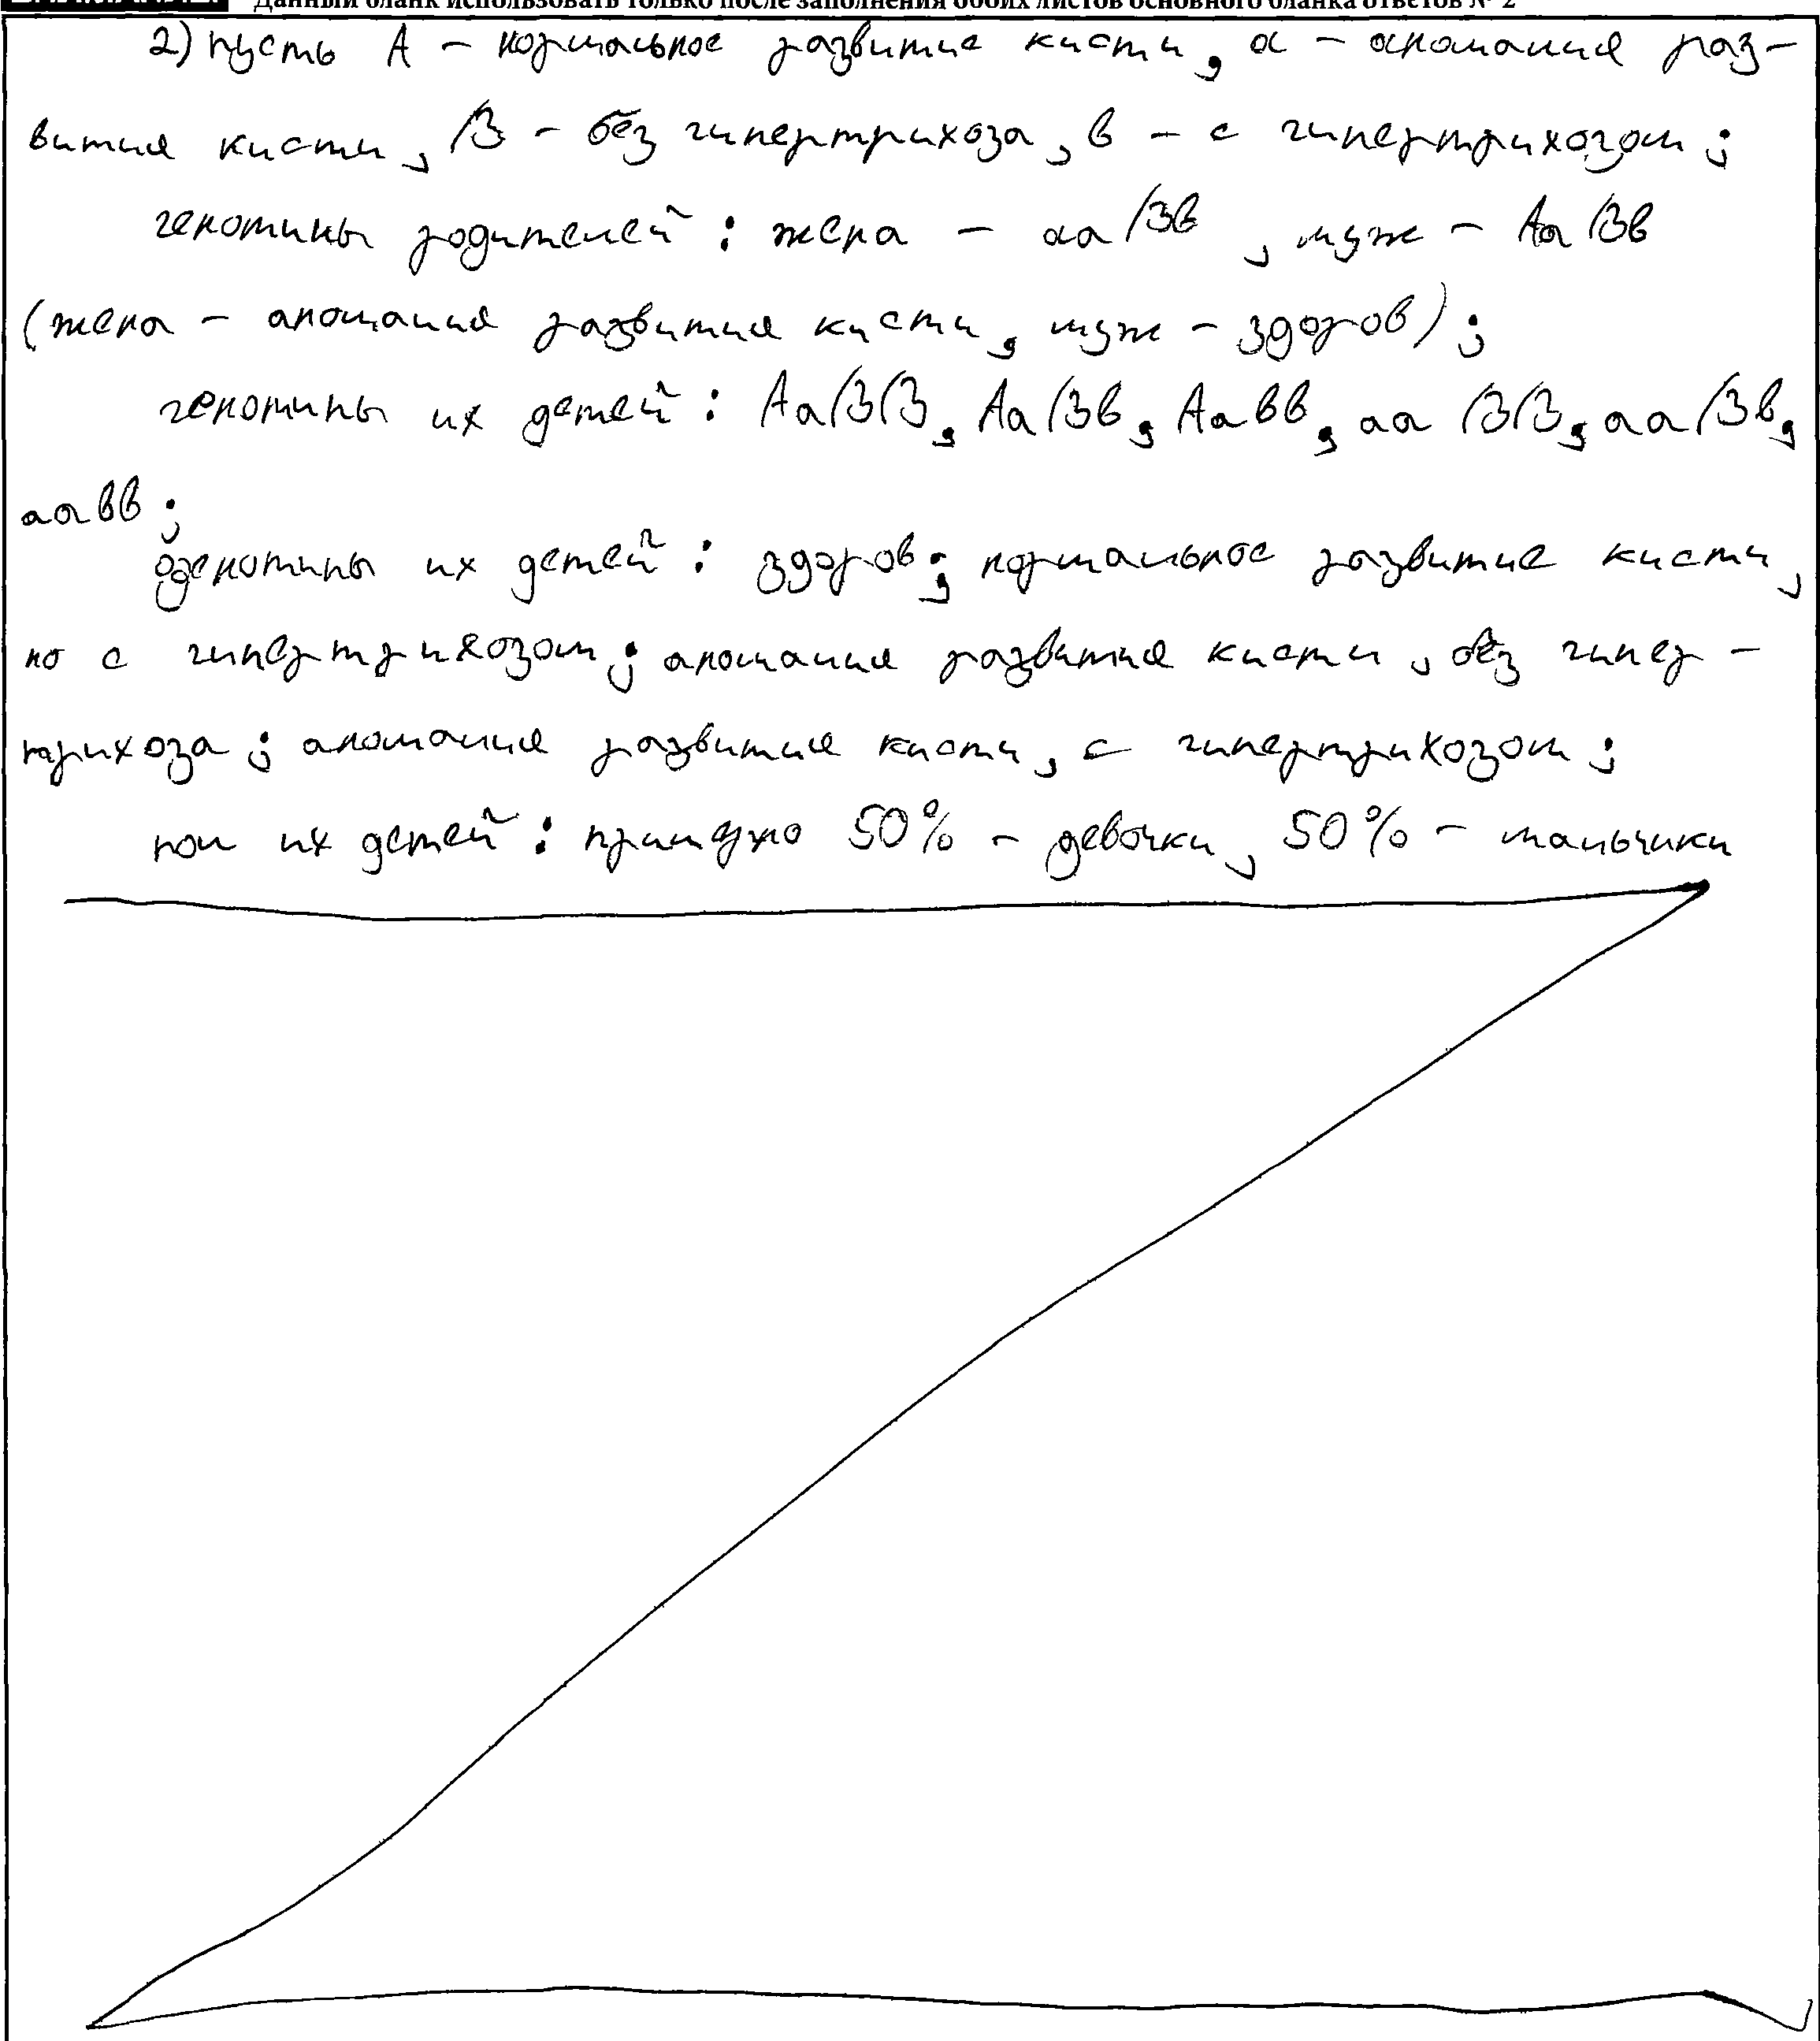 Данный бланк использовать только после заполнения обоих листов основного бланка ответов № 2
2) пусть А – нормальное развитие кисти, а – аномалия раз-
вития кисти, В – без гипертрихоза, в – с гипертрихозом;
генотипы родителей: жена – ааВв, муж – АаВв
(жена – аномалия развития кисти, муж – здоров);
генотипы их детей: АаВВ, АаВв, Аавв, ааВВ, ааВв,
аавв;
фенотипы их детей: здоров; нормальное развитие кисти,
но с гипертрихозом; аномалия развития кисти, без гипер-
трихоза; аномалия развития кисти, с гипертрихозом;
пол их детей: примерно 50% – девочки, 50% – мальчики